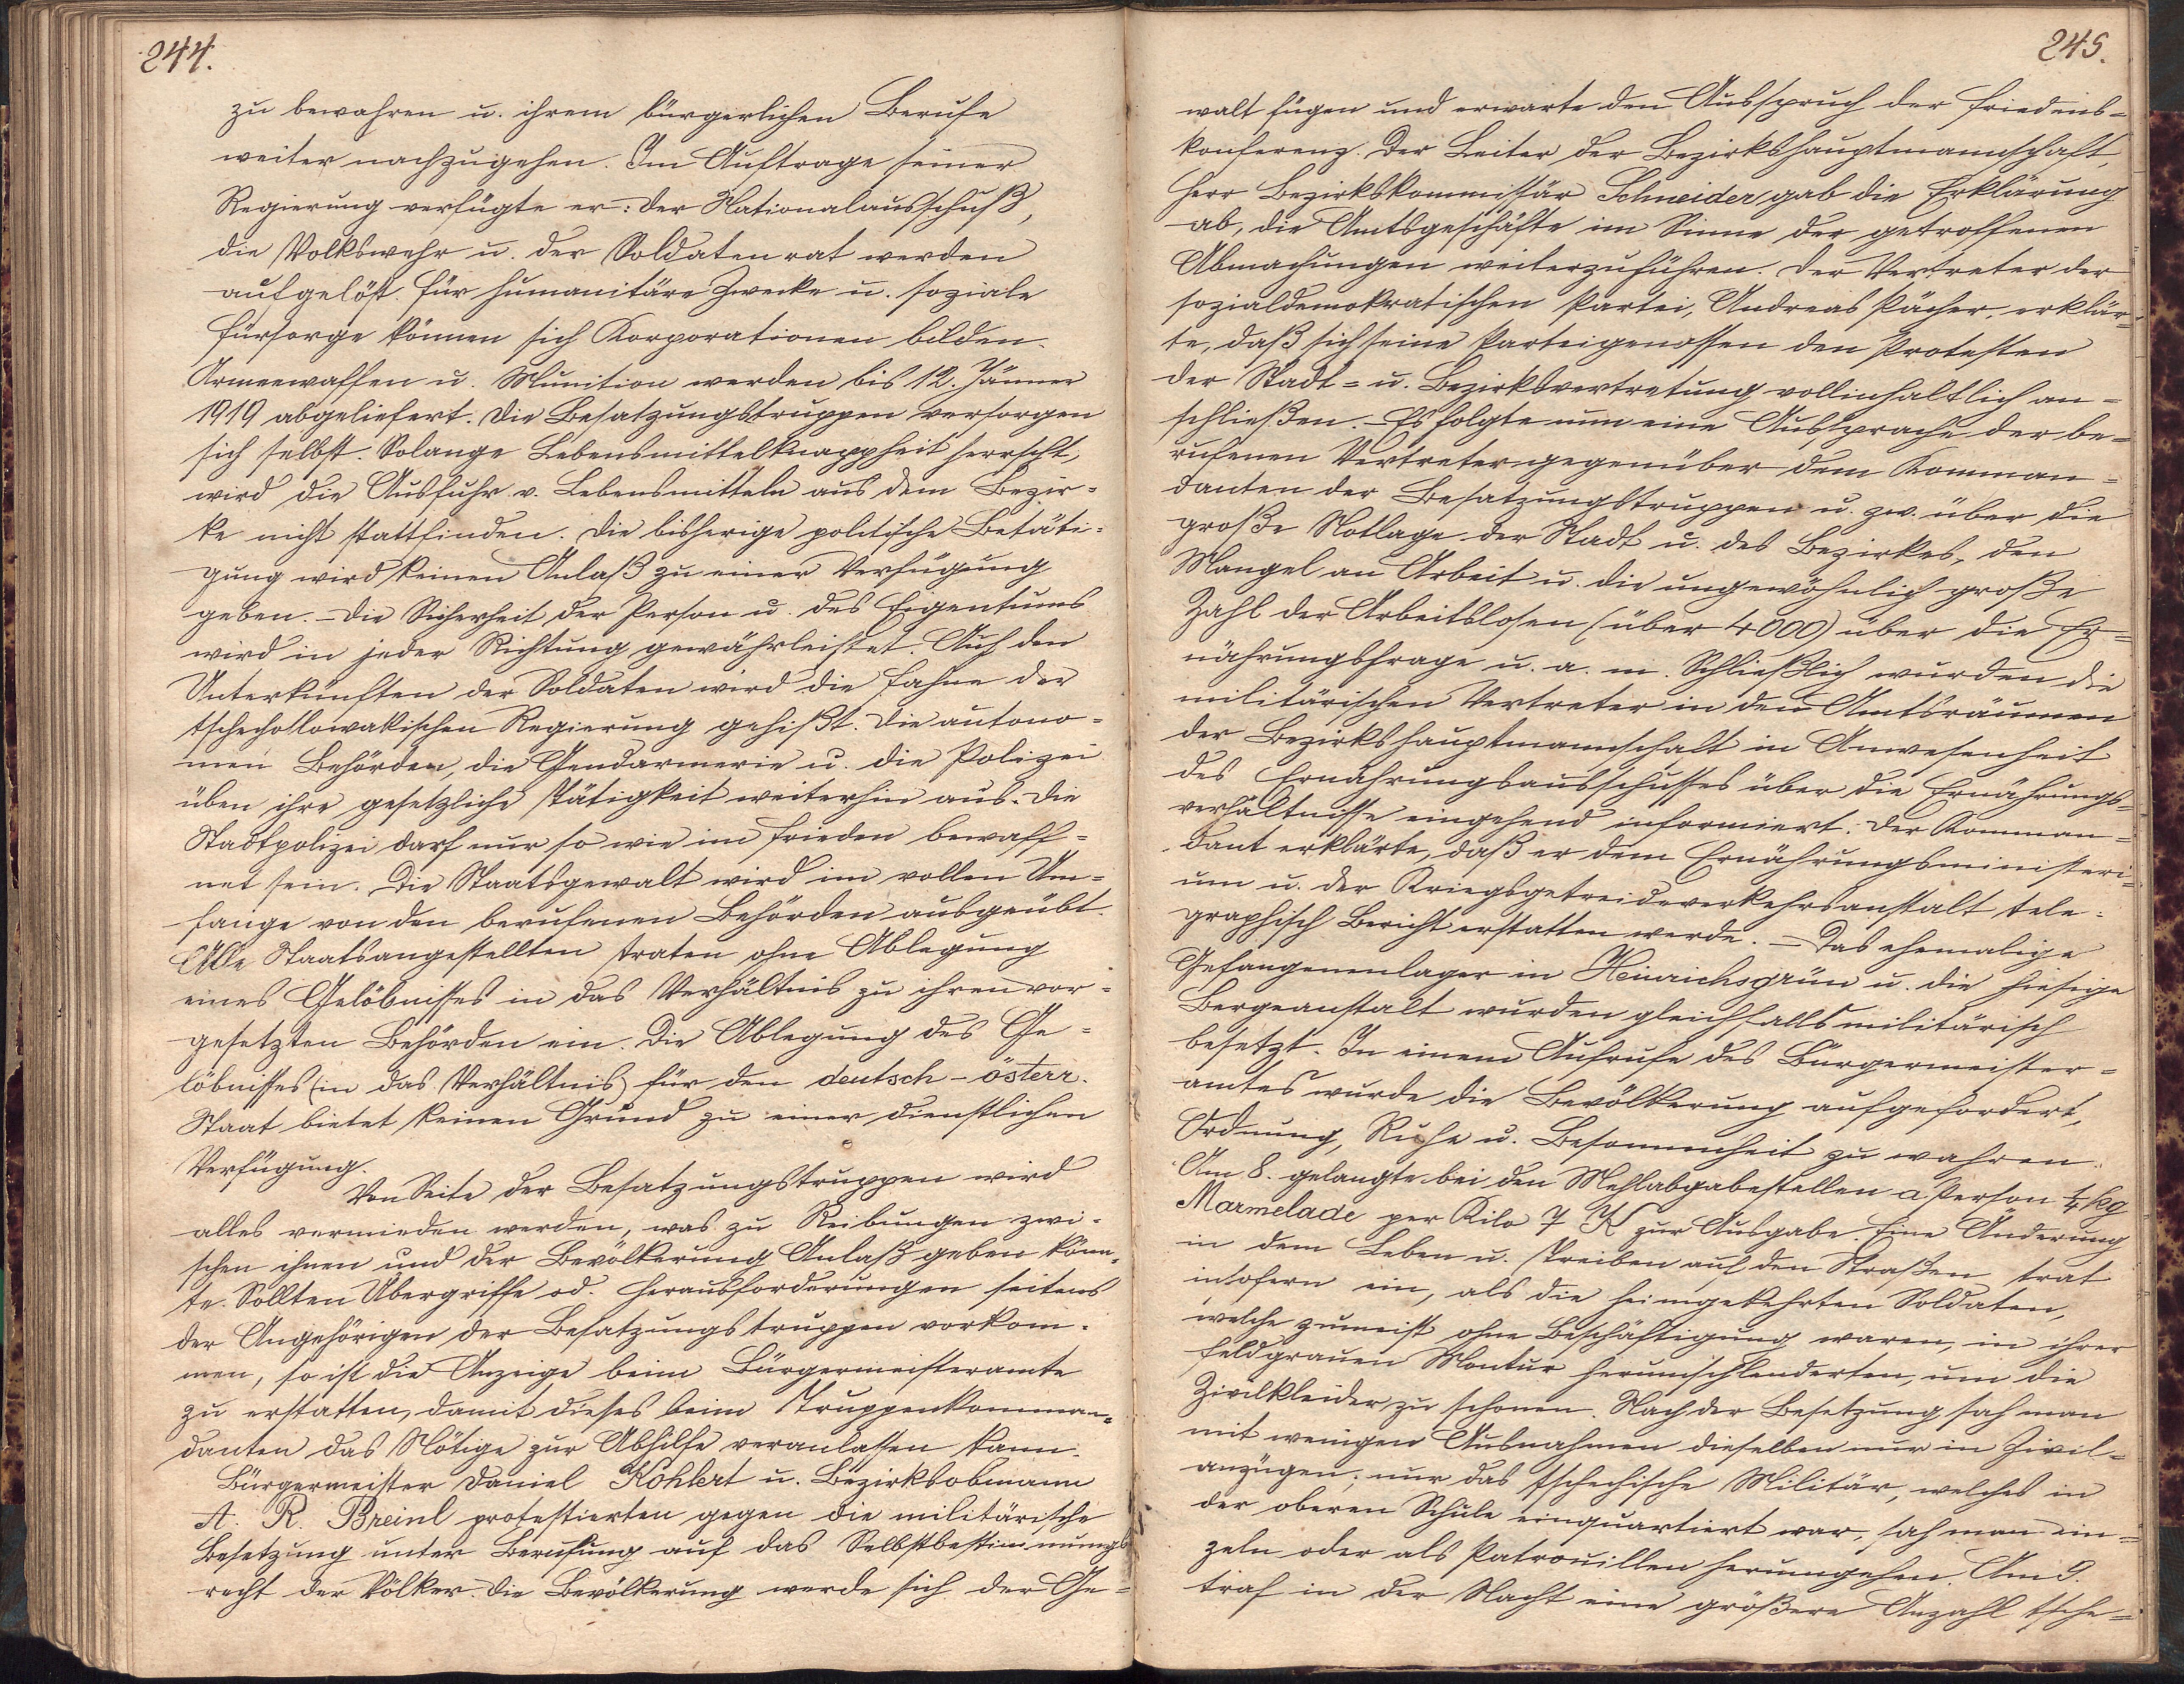 244.
zu bewahren u. ihrem bürgerlichen Berufe
weiter nachzugehen. Im Auftrage seiner
Regierung verfügte er: Der Nationalausschuß,
die Volkswehr u. der Soldatenrat werden
aufgelöst. Für humanitäre Zwecke u. soziale
Fürsorge können sich Korporationen bilden.
Armeewaffen u. Munition werden bis 12. Jänner
1919 abgeliefert. Die Besatzungstruppen versorgen
sich selbst. Solange Lebensmittelknappheit herrscht,
wird die Ausfuhr v. Lebensmitteln aus dem Bezir=
ke nicht stattfinden. Die bisherige politische Betäti=
gung wird keinen Anlaß zu einer Verfügung
geben. – Die Sicherheit der Person u. des Eigentums
wird in jeder Richtung gewährleistet. Auf den
Unterkünften der Soldaten wird die Fahne der
tschechoslowakischen Regierung gehißt. Die autono=
men Behörden, die Gendarmerie u. die Polizei
üben ihre gesetzliche Tätigkeit weiterhin aus. Die
Stadtpolizei darf nur so wie im Frieden bewaff=
net sein. Die Staatsgewalt wird im vollen Um=
fange von den berufenen Behörden ausgeübt.
Alle Staatsangestellten traten ohne Ablegung
eines Gelöbnisses in das Verhältnis zu ihren vor=
gesetzten Behörden ein. Die Ablegung des Ge=
löbnisses (in das Verhältnis) für den deutsch-österr.
Staat bietet keinen Grund zu einer dienstlichen
Verfügung.
Von Seite der Besatzungstruppen wird
alles vermieden werden, was zu Reibungen zwi=
schen ihnen und der Bevölkerung Anlaß geben könn=
te. Sollten Übergriffe od. Herausforderungen seitens
der Angehörigen der Besatzungstruppen vorkom=
men, so ist die Anzeige beim Bürgermeisteramte
zu erstatten, damit dieses beim Truppenkomman=
danten das Nötige zur Abhilfe veranlassen kann.
Bürgermeister Daniel Köhlert u. Bezirksobmann
A. R. Breinl protestierten gegen die militärische
Besetzung unter Berufung auf das Selbstbestimmungs
recht der Völker. Die Bevölkerung werde sich der Ge=
245.
walt fügen und erwarte den Ausspruch der Friedens=
konferenz. Der Leiter der Bezirkshauptmannschaft,
Herr Bezirkskommissär Schneider gab die Erklärung
ab, die Amtsgeschäfte im Sinne der getroffenen
Abmachungen weiterzuführen. Der Vertreter der
sozialdemokratischen Partei, Andreas Pächer, erklär=
te, daß sich seine Parteigenossen den Protesten
der Stadt= u. Bezirksvertretung vollinhaltlich an=
schließen. – Es folgte nun eine Aussprache der be=
rufenen Vertreter gegenüber dem Komman=
danten der Besatzungstruppen u. zw. über die
große Notlage der Stadt u. des Bezirkes, den
Mangel an Arbeit u. die ungewöhnlich große
Zahl der Arbeitslosen (über 4000) über die Er=
nährungsfrage u. a. m. Schließlich wurden die
militärischen Vertreter in den Amtsräumen
der Bezirkshauptmannschaft in Anwesenheit
des Ernährungsausschusses über die Ernährungs=
verhältnisse eingehend informiert. Der Komman=
dant erklärte, daß er dem Ernährungsministeri=
um u. der Kriegsgetreideverkehrsanstalt tele=
graphisch Bericht erstatten werde. – Das ehemalige
Gefangenenlager in Heinrichsgrün u. die hiesige
Bergeanstalt wurden gleichfalls militärisch
besetzt. In einem Aufrufe des Bürgermeister=
amtes wurde die Bevölkerung aufgefordert,
Ordnung, Ruhe u. Besonnenheit zu wahren.
Am 8. gelangte bei den Mehlabgabestellen a Person 1/4 kg
Marmelade per Kilo 7 K zur Ausgabe. Eine Änderung
in dem Leben u. Treiben auf den Straßen trat
insofern ein, als die heimgekehrten Soldaten,
welche zumeist ohne Beschäftigung waren, in ihrer
feldgrauen Montur herumschlenderten, um die
Zivilkleider zu schonen. Nach der Besetzung sah man
mit wenigen Ausnahmen dieselben nur in Zivil=
anzügen; nur das tschechische Militär, welches in
der oberen Schule einquartiert war, sah man ein=
zeln oder als Patrouillen herumgehen. Am 9.
traf in der Nacht eine größere Anzahl tsche=